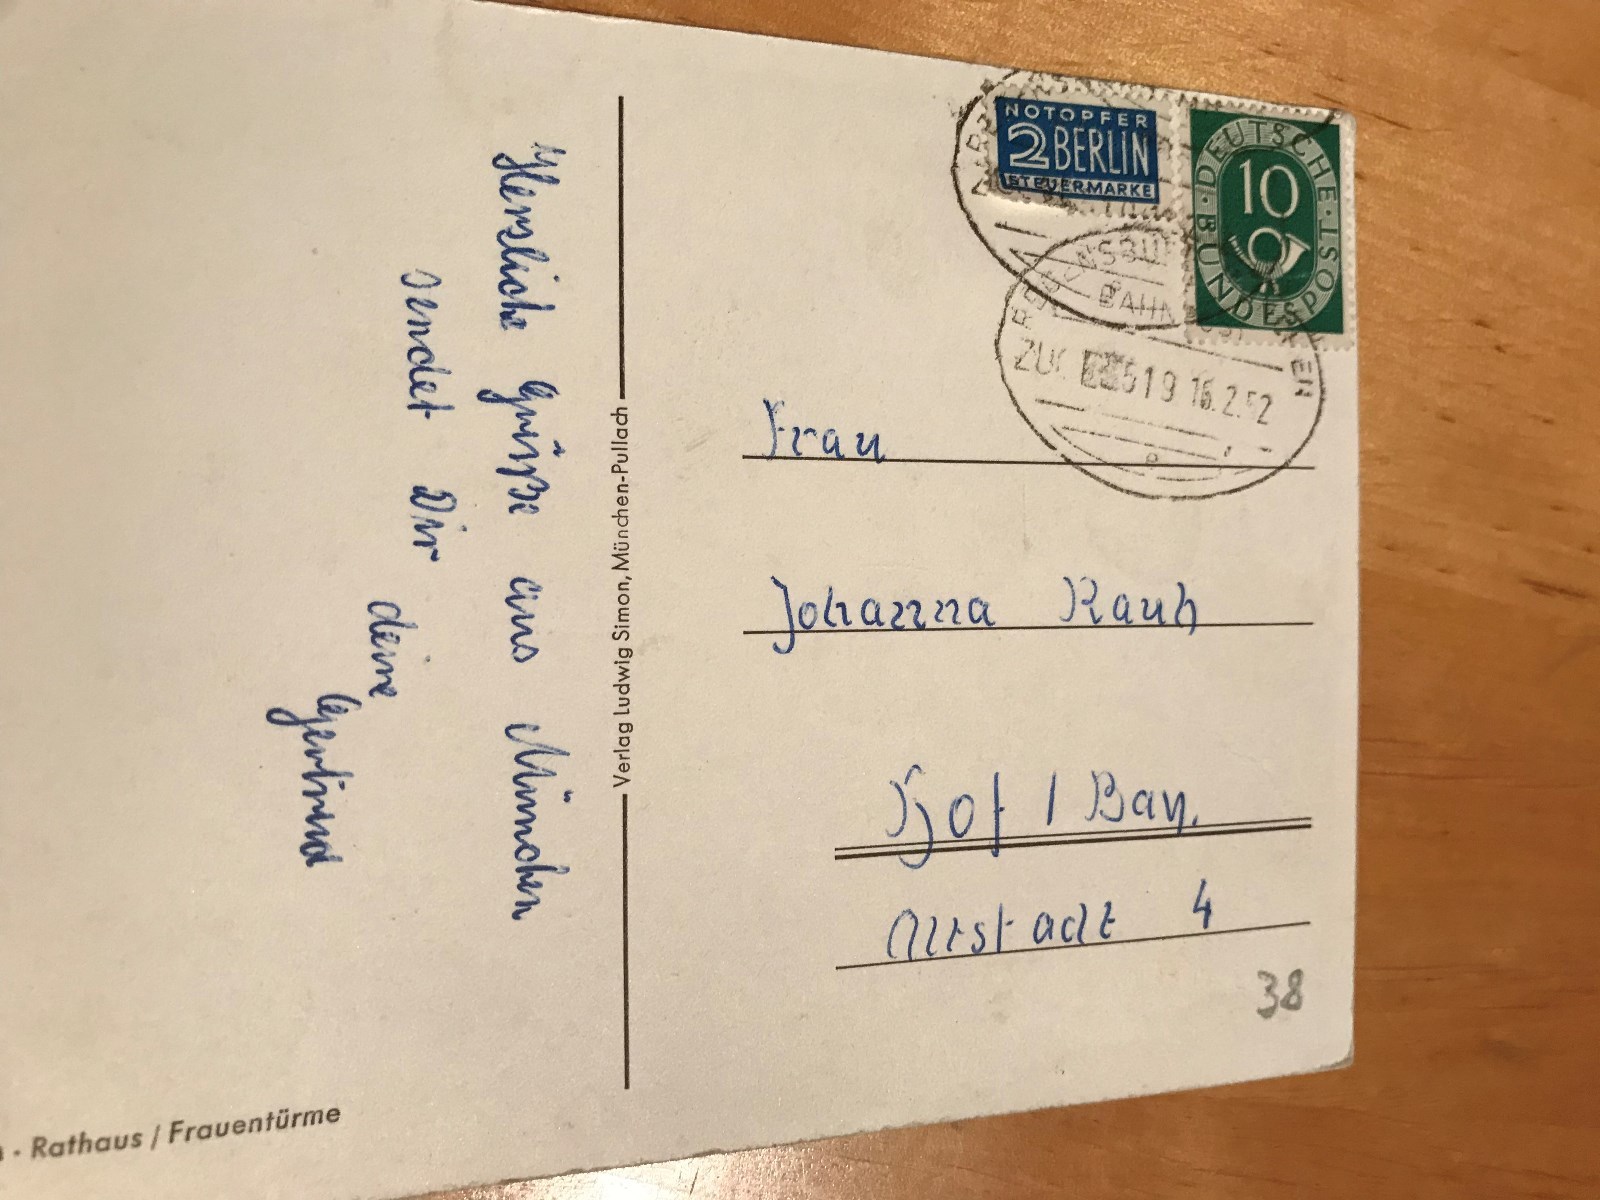 Herzliche Grüße aus München
sendet Dir deine
Gertraud
Verlag Ludwig Simon, München-Pullach
NOTOPFER
2 BERLIN
STEUERMARKE
DEUTSCHE BUNDESPOST
10
REGENSBU
BAHNPOST
ZUG 519 16.2.52
Frau
Johanna Rauh
Hof / Bay.
Altstadt 4
38
· Rathaus / Frauentürme